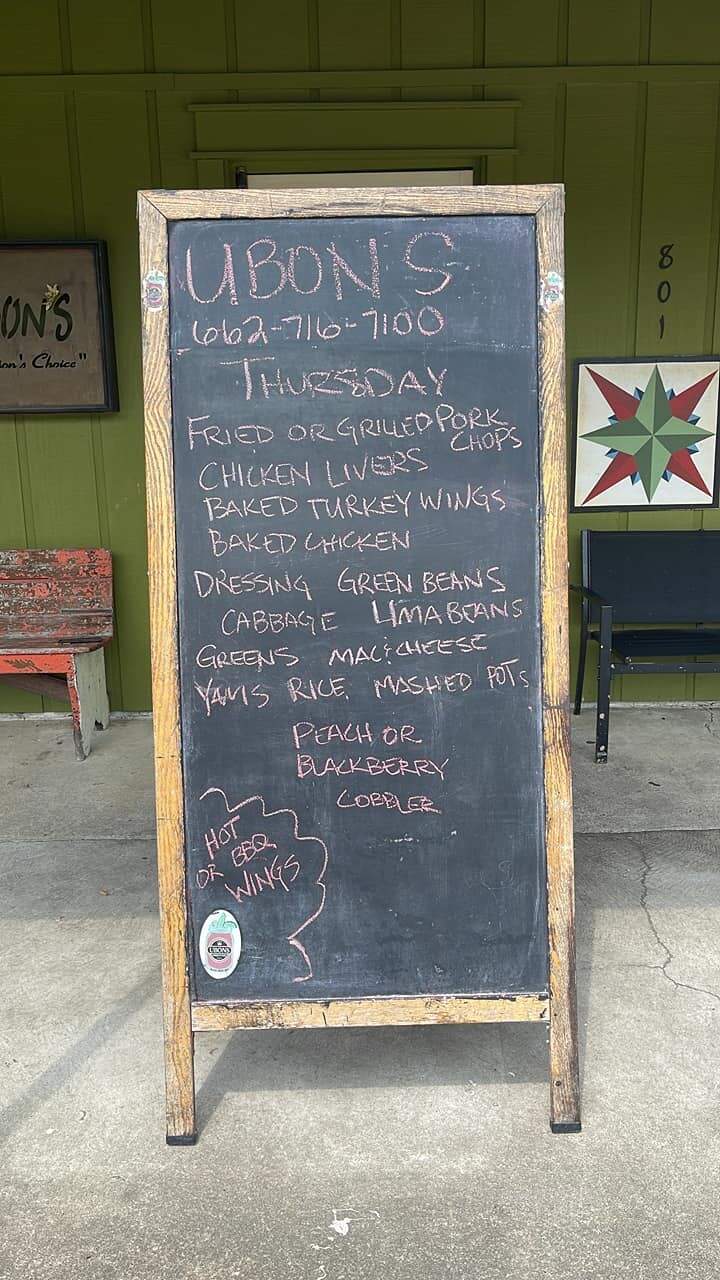 UBON'S
662-716-7100
THURSDAY
FRIED OR GRILLED PORK
CHOPS
CHICKEN LIVERS
BAKED TURKEY WINGS
BAKED CHICKEN
DRESSING GREEN BEANS
CABBAGE LIMA BEANS
GREENS MAC & CHEESE
YAMS RICE MASHED POTS
PEACH OR
BLACKBERRY
COBBLER
HOT
OR BBQ
WINGS
UBONS
ON'S
on's Choice"
801